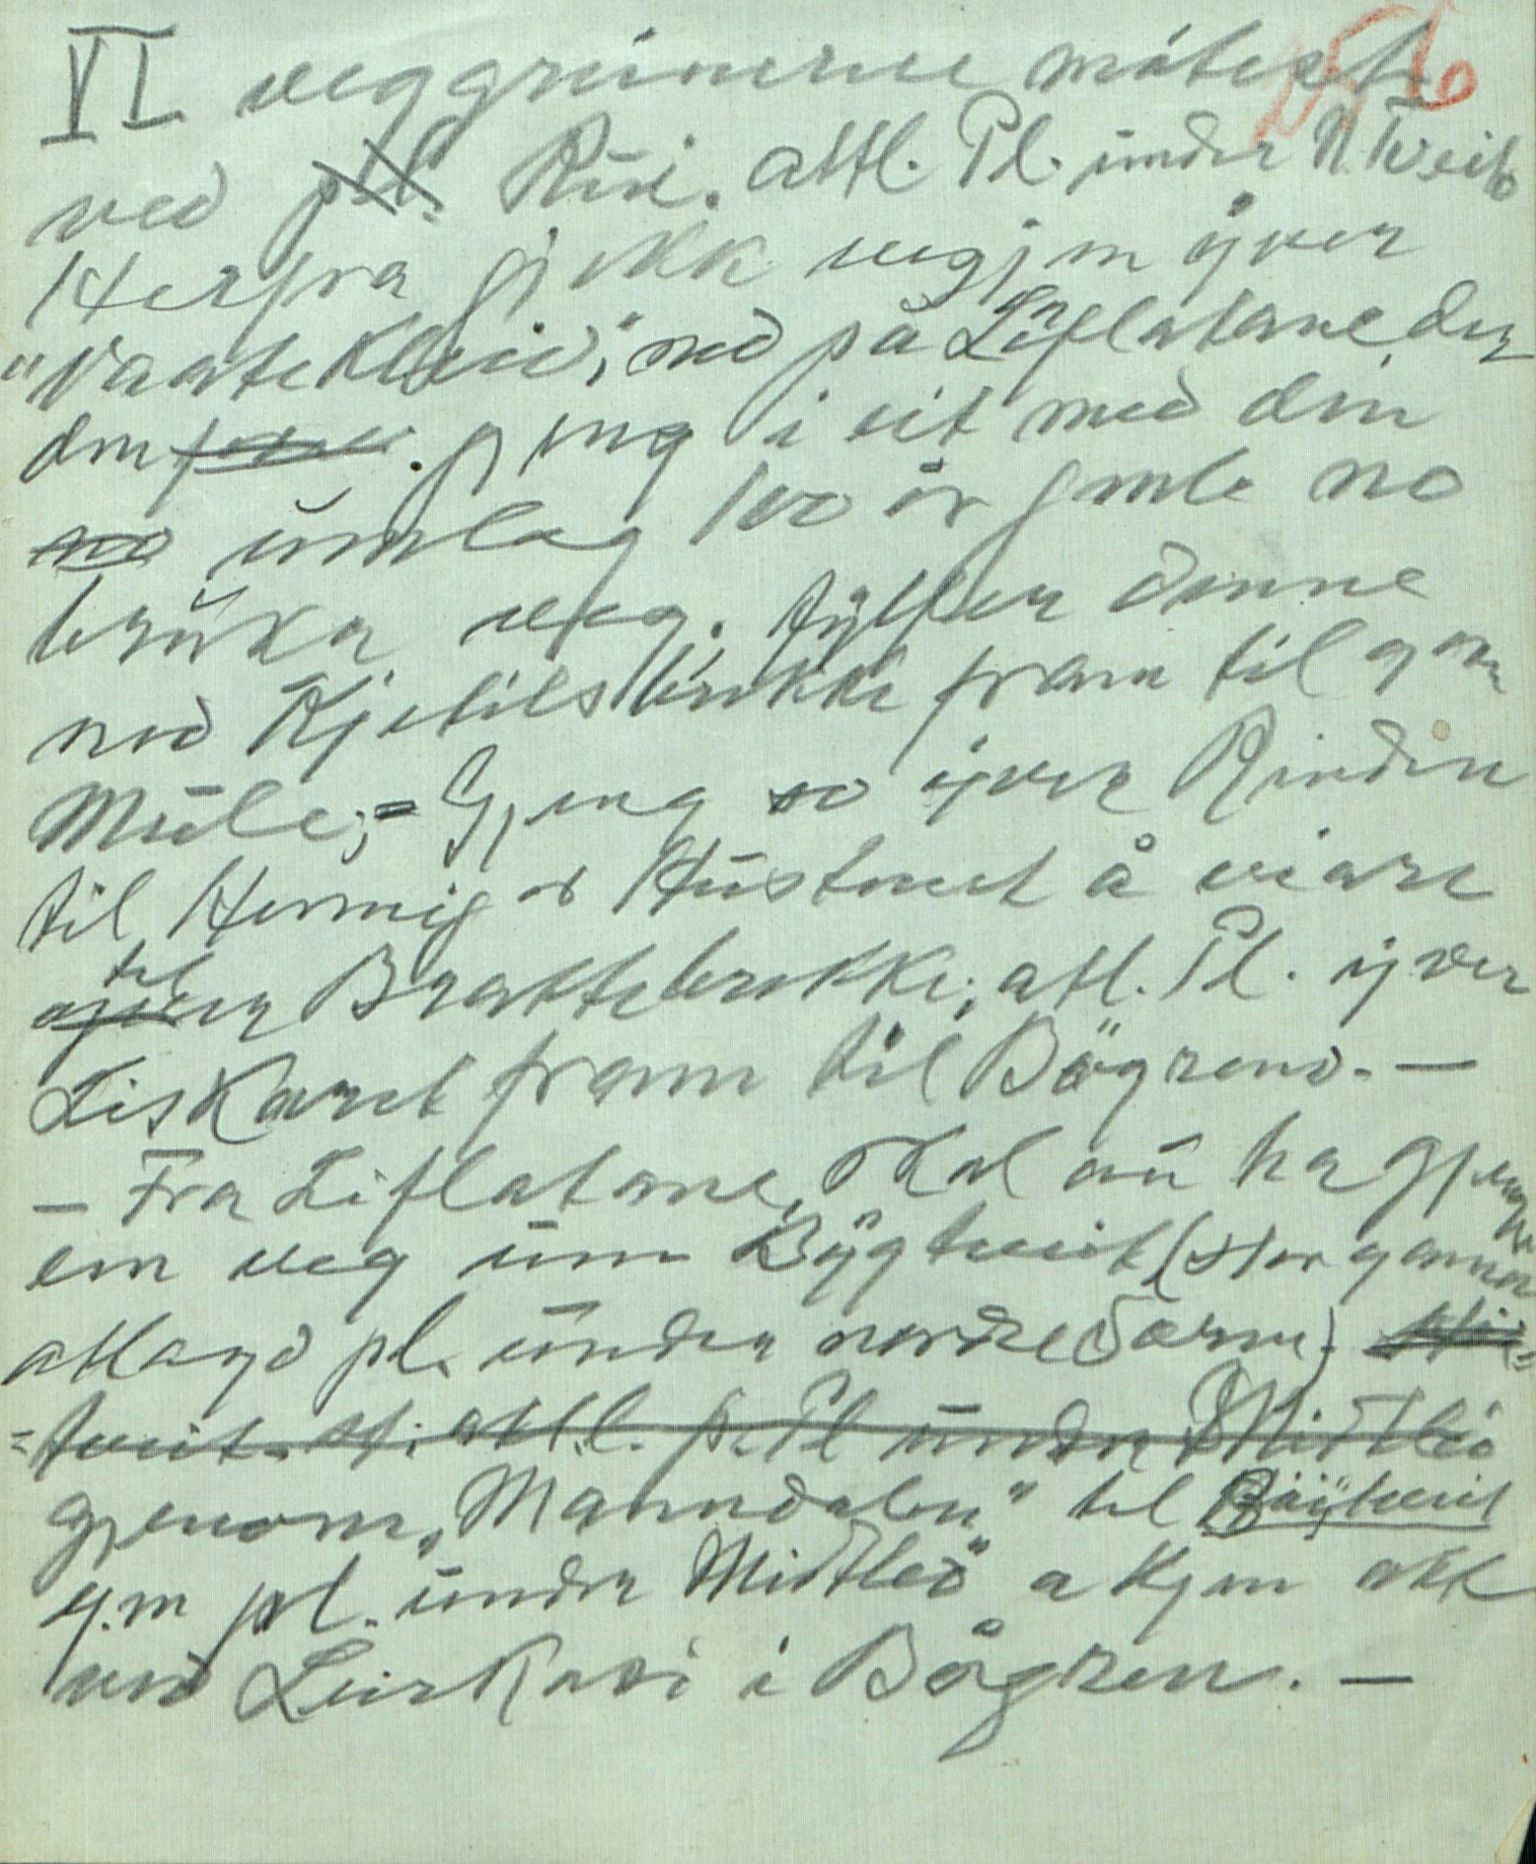 VI veggrunerne mötest
ved Rui. attl. Pl. under N. Tveito
Herfra gjekk vegjen yver
"Vaatekleiv", ned på Liflatane, der
den gjeng i eit med den
umlag 100 år gamle no
bruka veg. fylljer denne
ned Kjetilsbrekke fram til gam
Mule; - Gjeng so yver Rinden
til Hermig os Hustveit å viare
til Brattebrekke; atl. Pl. yver
Liskaret fram til Bögrend. —
— Fra Liflatane skal au ha gjeng
em veg um Bygtveit (stor gamm
atlagd pl. under nordre Sæm)
=tveit attl. Pl under Midtleö
gjenom "Manndalen" til Böytveit
g.m pl. under "Midtleö" a kjem att
ned Leirkasi i Bågren. —